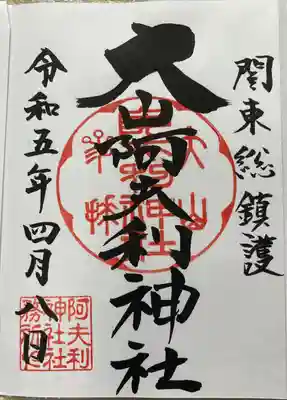 関東総鎮護
大山阿夫利神社
令和五年四月八日
阿夫利
神社社
務所之